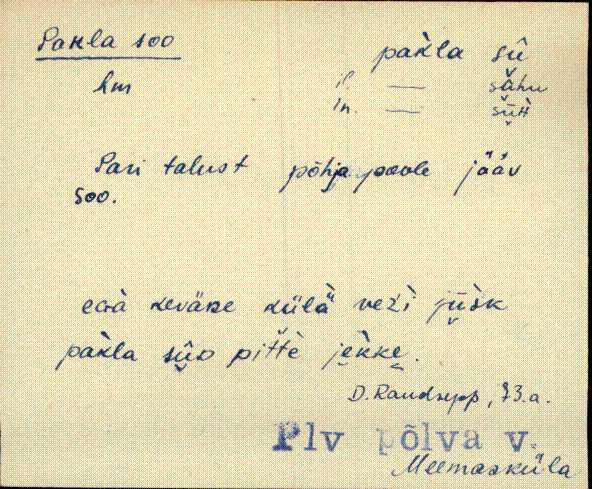 Pakla soo
pakla sü
hm
il. — sähu
in. — süh
Pari talust põhja poole jääv
soo.
keväne külä vezi
pakla pittè jekke.
D. Raudsepp, 73.a.
Plv põlva v.
Meemasküla